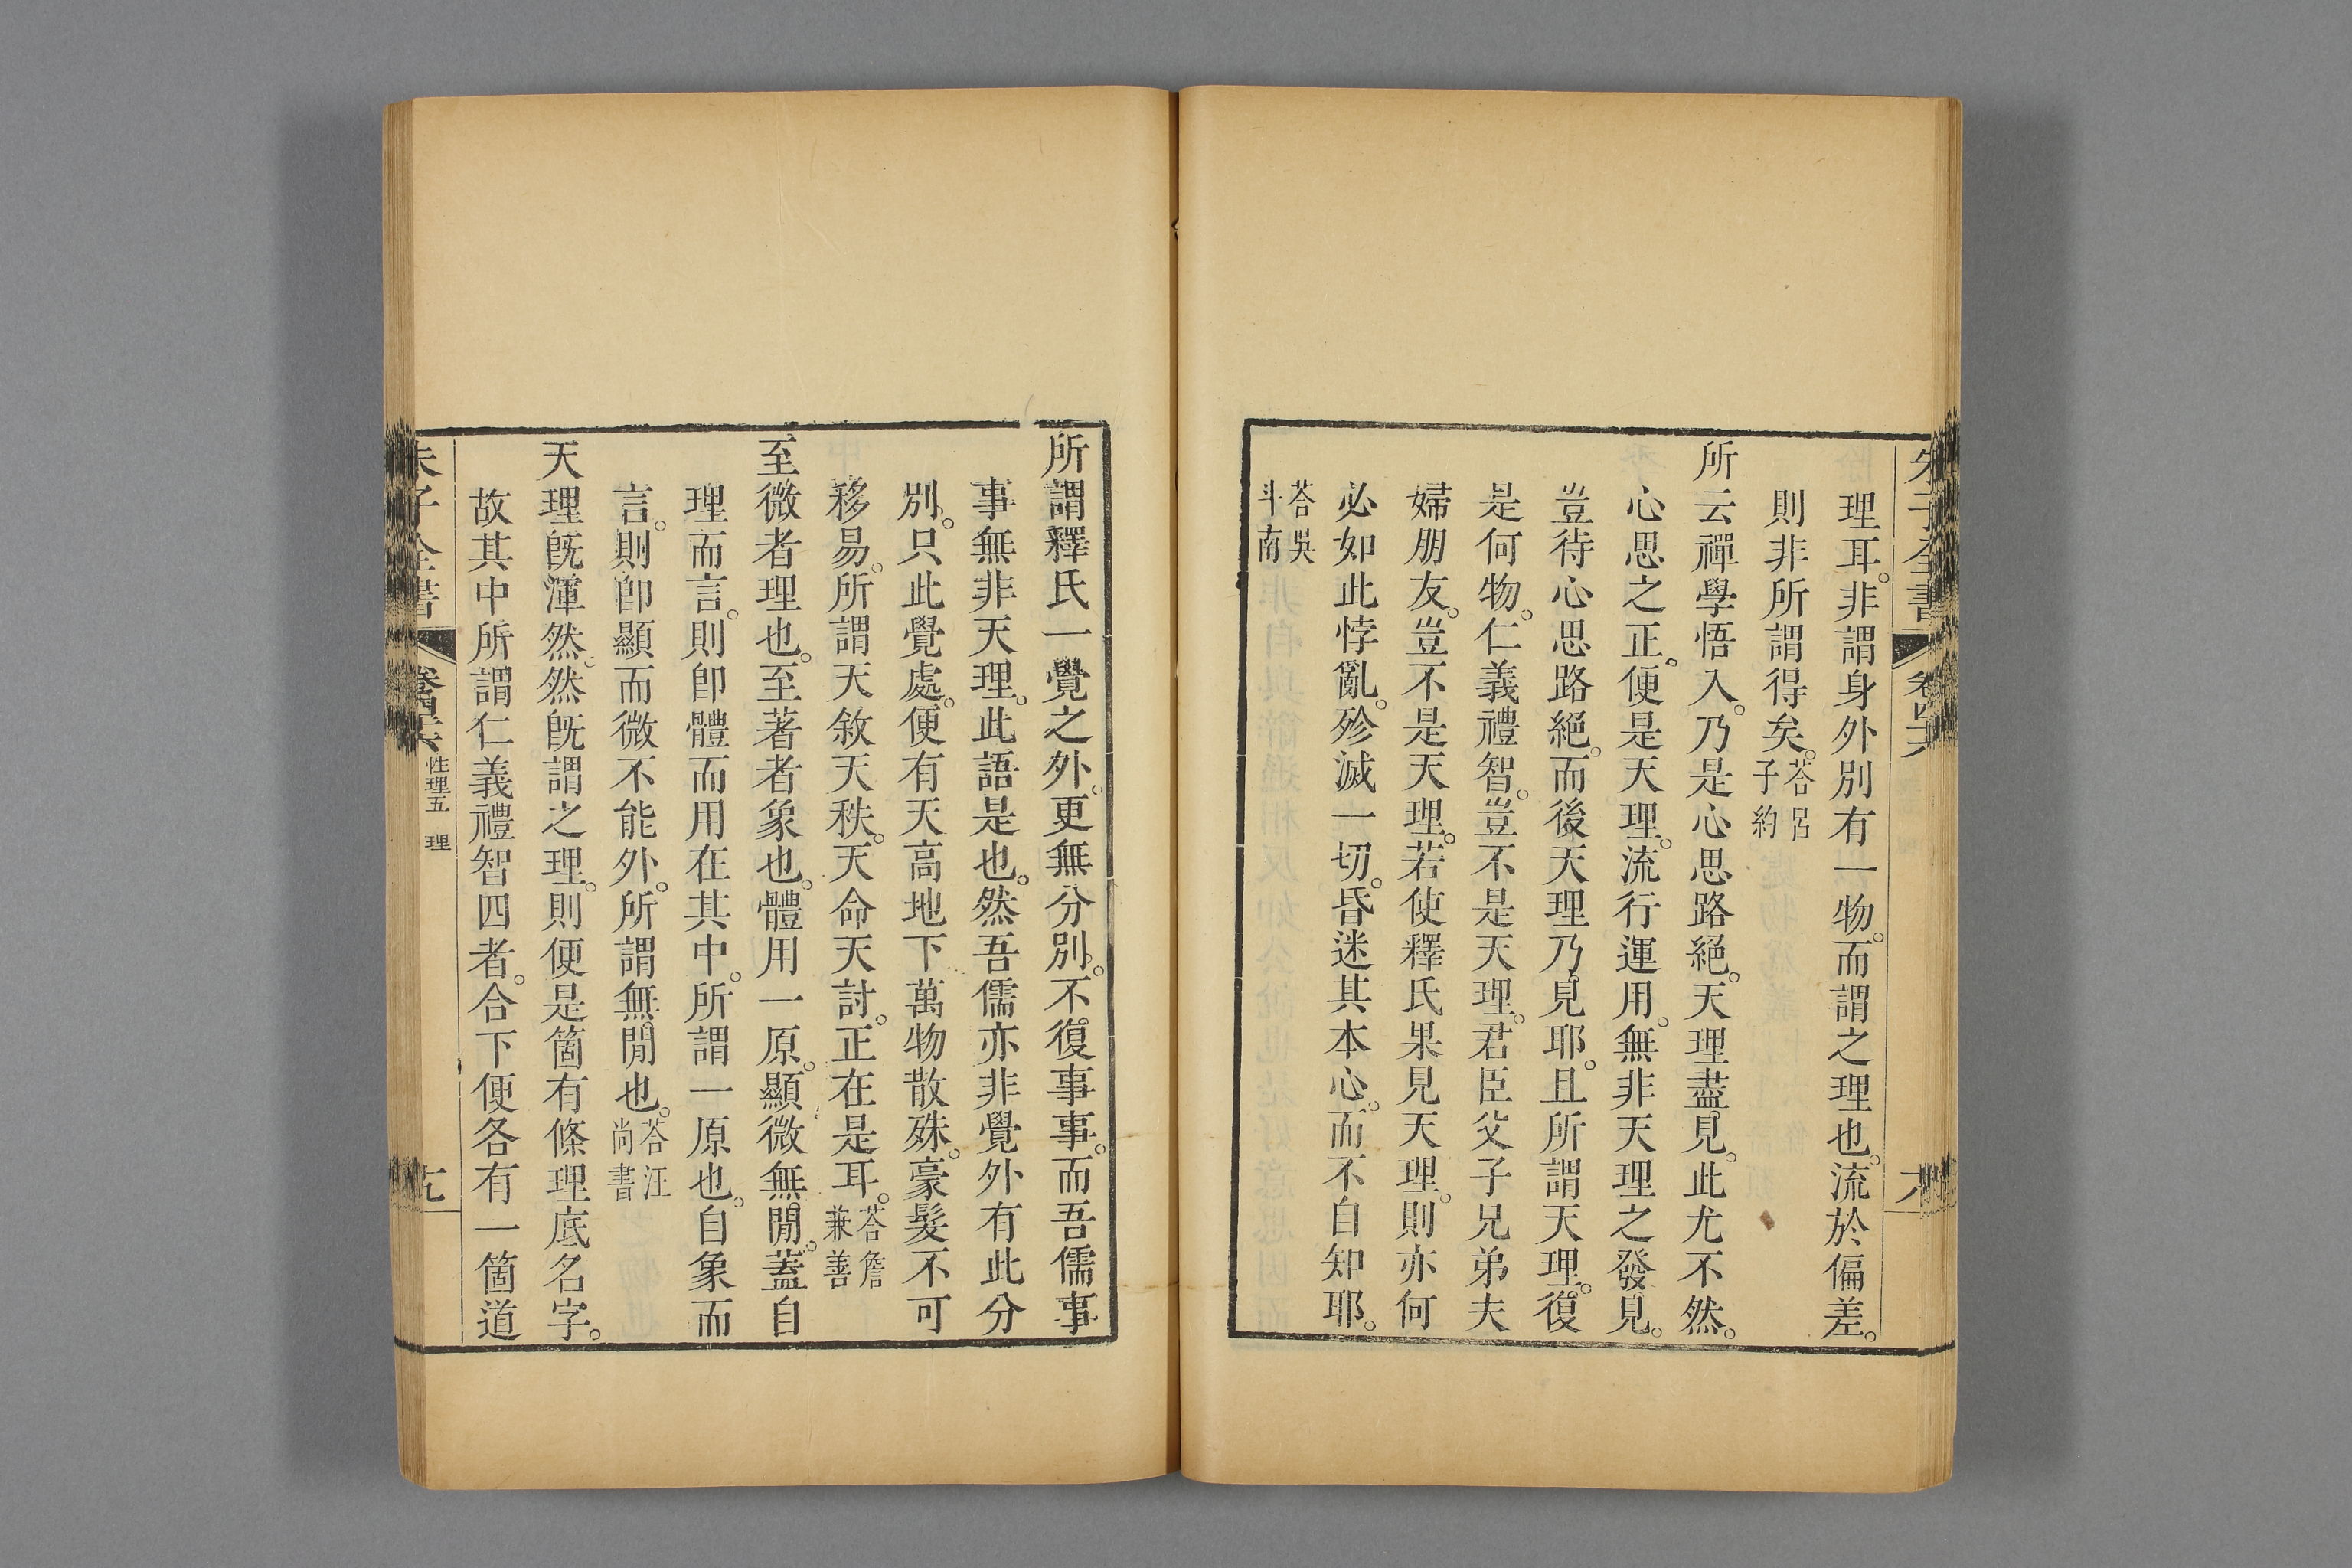 理耳。非謂身外別有一物。而謂之理也。流於偏差。
則非所謂得矣。荅呂子約
所云禪學悟入。乃是心思路絕。天理盡見。此尤不然。
心思之正。便是天理。流行運用。無非天理之發見。
豈待心思路絕。而後天理乃見耶。且所謂天理。復
是何物。仁義禮智。豈不是天理。君臣父子兄弟夫
婦朋友。豈不是天理。若使釋氏果見天理。則亦何
必如此悖亂。殄滅一切。昏迷其本心。而不自知耶。
荅吳斗南
所謂釋氏一覺之外。更無分別。不復事事。而吾儒事
事無非天理。此語是也。然吾儒亦非覺外有此分
別。只此覺處。便有天高地下萬物散殊。豪髮不可
移易。所謂天敘天秩。天命天討。正在是耳。荅詹兼善
至微者理也。至著者象也。體用一原。顯微無閒。蓋自
理而言。則卽體而用在其中。所謂一原也。自象而
言。則卽顯而微不能外。所謂無閒也。荅汪尚書
天理旣渾然。然旣謂之理。則便是箇有條理底名字。
故其中所謂仁義禮智四者。合下便各有一箇道
朱子全書 性理五 理